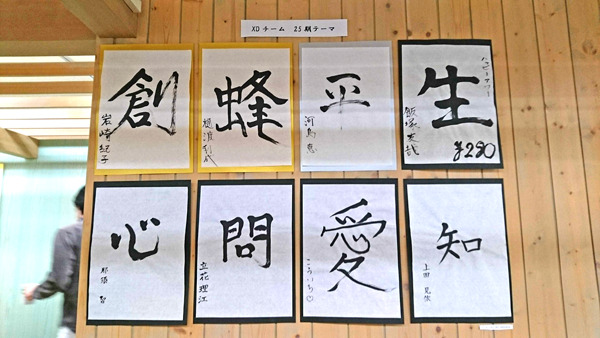 XDチーム 25期テーマ
創
岩崎紀子
蜂
平
河島恵
ハッピーアワー
生
飯塚大哉
¥280
心
那須 智
問
立花理江
愛
こういち♡
知
上田